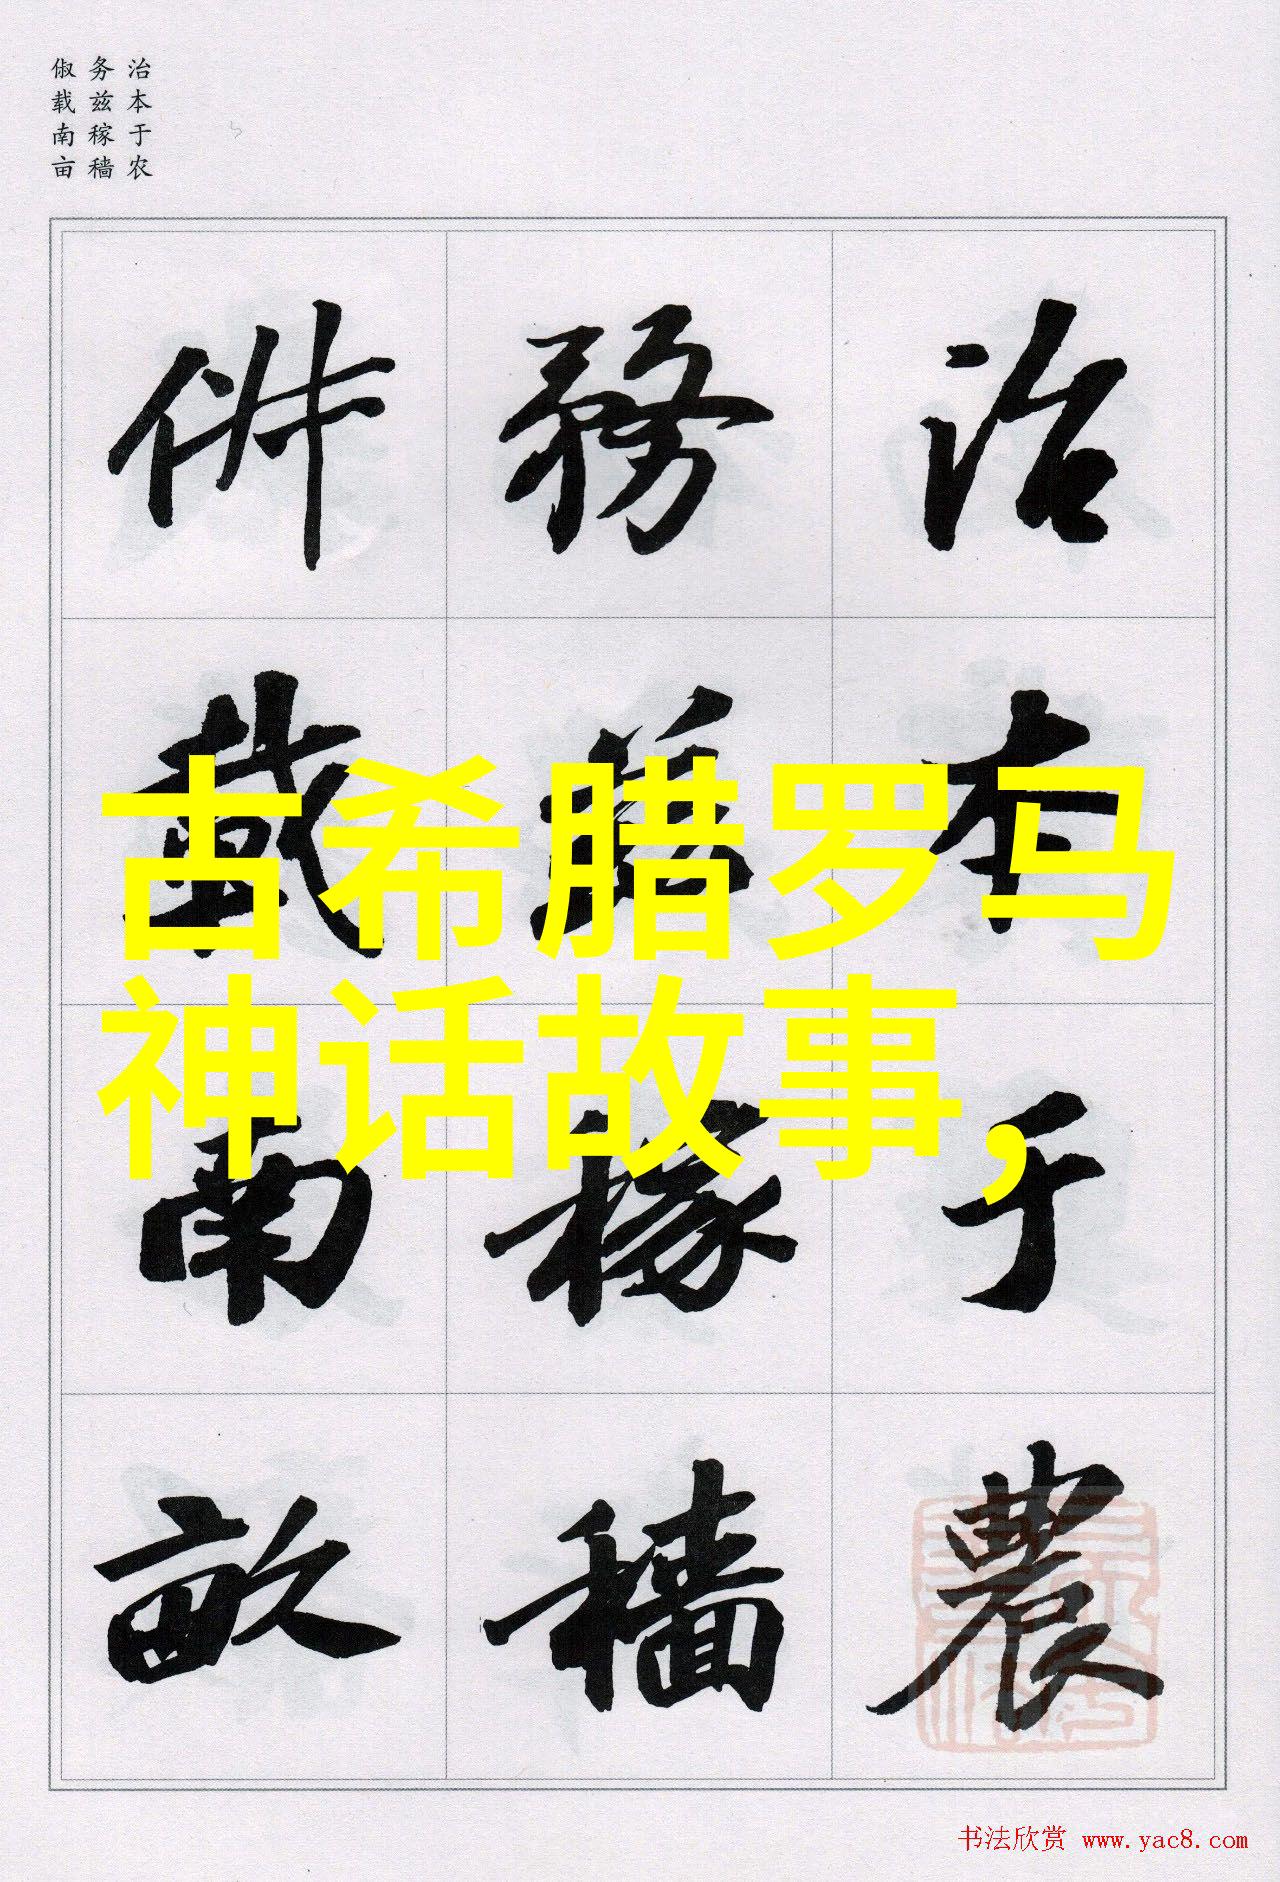 治本于农
务兹稼穑
俶载南亩
治本于農
務茲稼穡
俶載南畝
古希腊罗马
神话故事，
书法欣赏 www.yac8.com